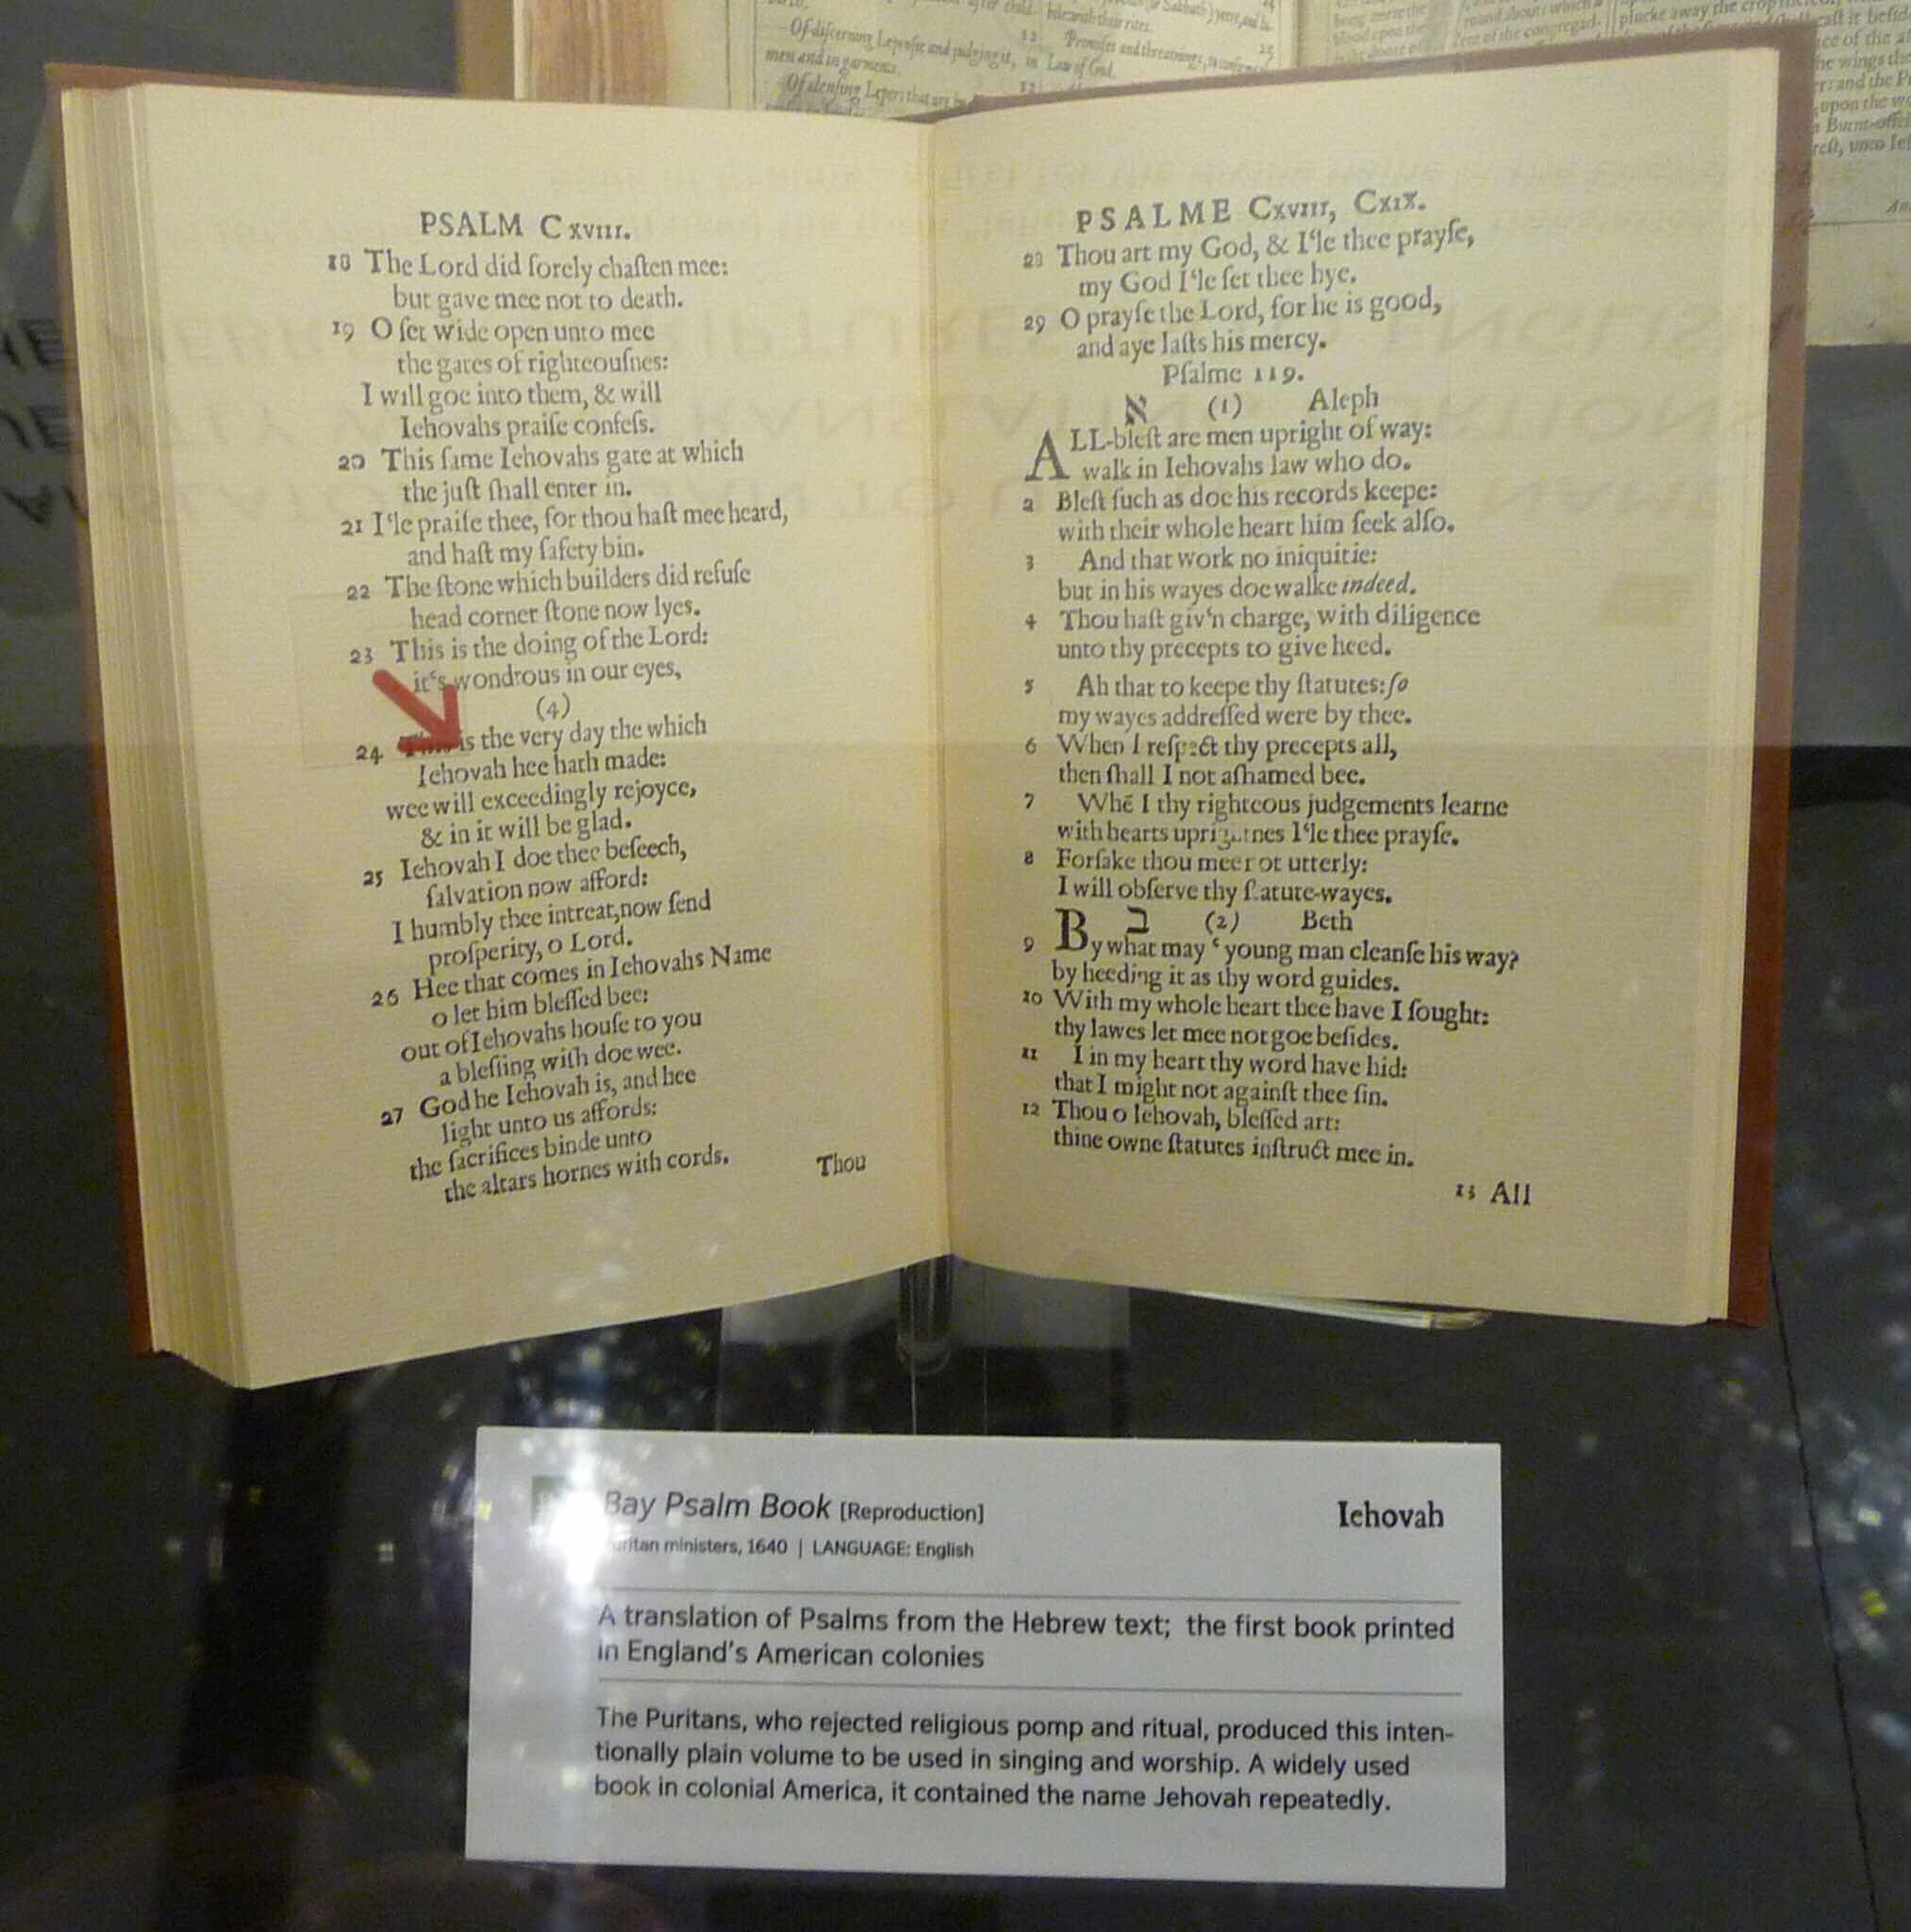 Of discerning Leprosie and judging it, in
men and in garments.
12
Promises and threatnings, to confirm
Law of God.
25
PSALM Cxviii.
18 The Lord did ſorely chaſten mee:
but gave mee not to death.
19 O ſet wide open unto mee
the gates of righteouſnes:
I will goe into them, & will
Iehovahs praiſe confeſs.
20 This ſame Iehovahs gate at which
the juſt ſhall enter in.
21 I‘le praiſe thee, for thou haſt mee heard,
and haſt my ſafety bin.
22 The ſtone which builders did refuſe
head corner ſtone now lyes.
23 This is the doing of the Lord:
it‘s wondrous in our eyes,
(4)
24 This is the very day the which
Iehovah hee hath made:
wee will exceedingly rejoyce,
& in it will be glad.
25 Iehovah I doe thee beſeech,
ſalvation now afford:
I humbly thee intreat,now ſend
proſperity, o Lord.
26 Hee that comes in Iehovahs Name
o let him bleſſed bee:
out of Iehovahs houſe to you
a bleſſing wiſh doe wee.
27 God he Iehovah is, and hee
light unto us affords:
the ſacrifices binde unto
the altars hornes with cords.
Thou
PSALME Cxviii, Cxix.
28 Thou art my God, & I‘le thee prayſe,
my God I‘le ſet thee hye.
29 O prayſe the Lord, for he is good,
and aye laſts his mercy.
Pſalme 119.
א (1) Aleph
ALL-bleſt are men upright of way:
walk in Iehovahs law who do.
2 Bleſt ſuch as doe his records keepe:
with their whole heart him ſeek alſo.
3 And that work no iniquitie:
but in his wayes doe walke indeed.
4 Thou haſt giv‘n charge, with diligence
unto thy precepts to give heed.
5 Ah that to keepe thy ſtatutes: ſo
my wayes addreſſed were by thee.
6 When I reſpect thy precepts all,
then ſhall I not aſhamed bee.
7 Whē I thy righteous judgements learne
with hearts uprightnes I‘le thee prayſe.
8 Forſake thou mee not utterly:
I will obſerve thy ſtatute-wayes.
ב (2) Beth
9 By what may ‘ young man cleanſe his way?
by heeding it as thy word guides.
10 With my whole heart thee have I ſought:
thy lawes let mee not goe beſides.
11 I in my heart thy word have hid:
that I might not againſt thee ſin.
12 Thou o Iehovah, bleſſed art:
thine owne ſtatutes inſtruct mee in.
13 All
Bay Psalm Book [Reproduction]
Iehovah
Puritan ministers, 1640 | LANGUAGE: English
A translation of Psalms from the Hebrew text; the first book printed
in England's American colonies
The Puritans, who rejected religious pomp and ritual, produced this inten-
tionally plain volume to be used in singing and worship. A widely used
book in colonial America, it contained the name Jehovah repeatedly.